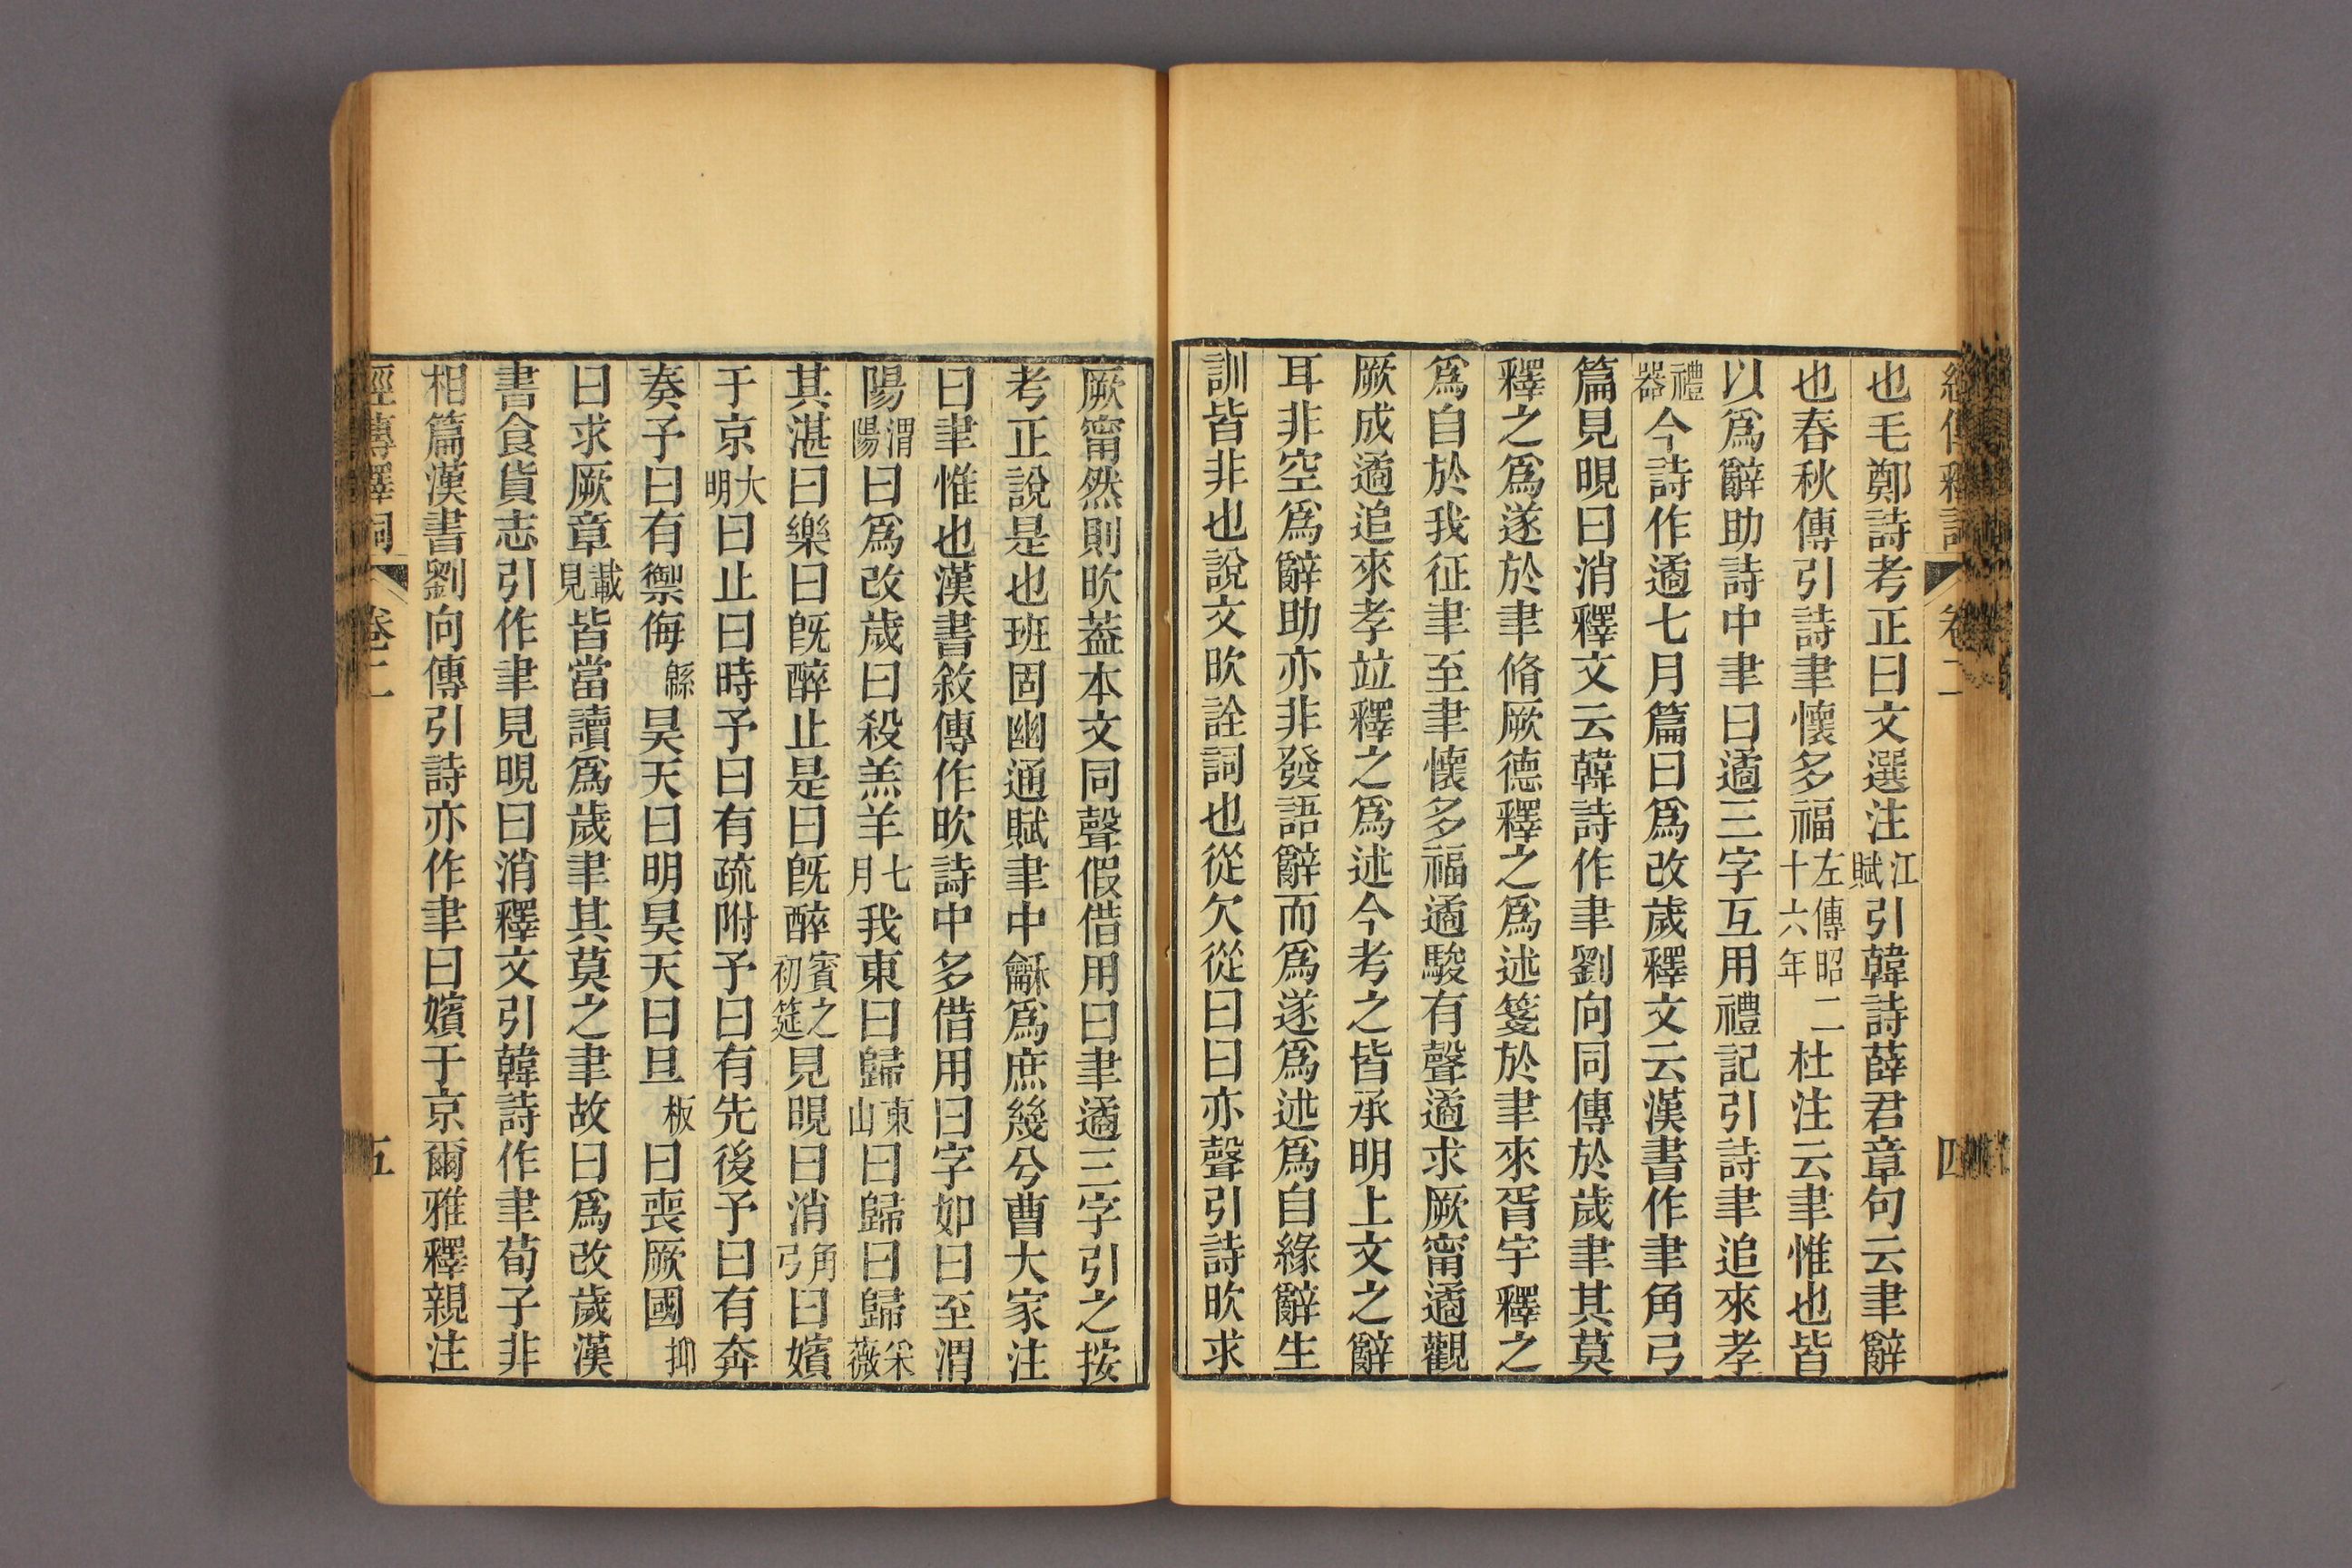 經傳釋詞 卷二 四
也毛鄭詩考正曰文選注江賦引韓詩薛君章句云聿辭
也春秋傳引詩聿懷多福左傳昭二十六年杜注云聿惟也皆
以爲辭助詩中聿曰遹三字互用禮記引詩聿追來孝
禮器今詩作遹七月篇曰爲改歲釋文云漢書作聿角弓
篇見晛曰消釋文云韓詩作聿劉向同傳於歲聿其莫
釋之爲遂於聿脩厥德釋之爲述箋於聿來胥宇釋之
爲自於我征聿至聿懷多福遹駿有聲遹求厥甯遹觀
厥成遹追來孝竝釋之爲述今考之皆承明上文之辭
耳非空爲辭助亦非發語辭而爲遂爲述爲自緣辭生
訓皆非也說文欥詮詞也從欠從曰曰亦聲引詩欥求
厥甯然則欥葢本文同聲假借用曰聿遹三字引之按
考正說是也班固幽通賦聿中龢爲庶幾兮曹大家注
曰聿惟也漢書敘傳作欥詩中多借用曰字如曰至渭
陽渭陽曰爲改歲曰殺羔羊七月我東曰歸東山曰歸曰歸采薇
其湛曰樂曰旣醉止是曰旣醉賓之初筵見晛曰消角弓曰嬪
于京大明曰止曰時予曰有疏附予曰有先後予曰有奔
奏予曰有禦侮緜昊天曰明昊天曰旦板曰喪厥國抑
曰求厥章載見皆當讀爲歲聿其莫之聿故曰爲改歲漢
書食貨志引作聿見晛曰消釋文引韓詩作聿荀子非
相篇漢書劉向傳引詩亦作聿曰嬪于京爾雅釋親注
經傳釋詞 卷二 五